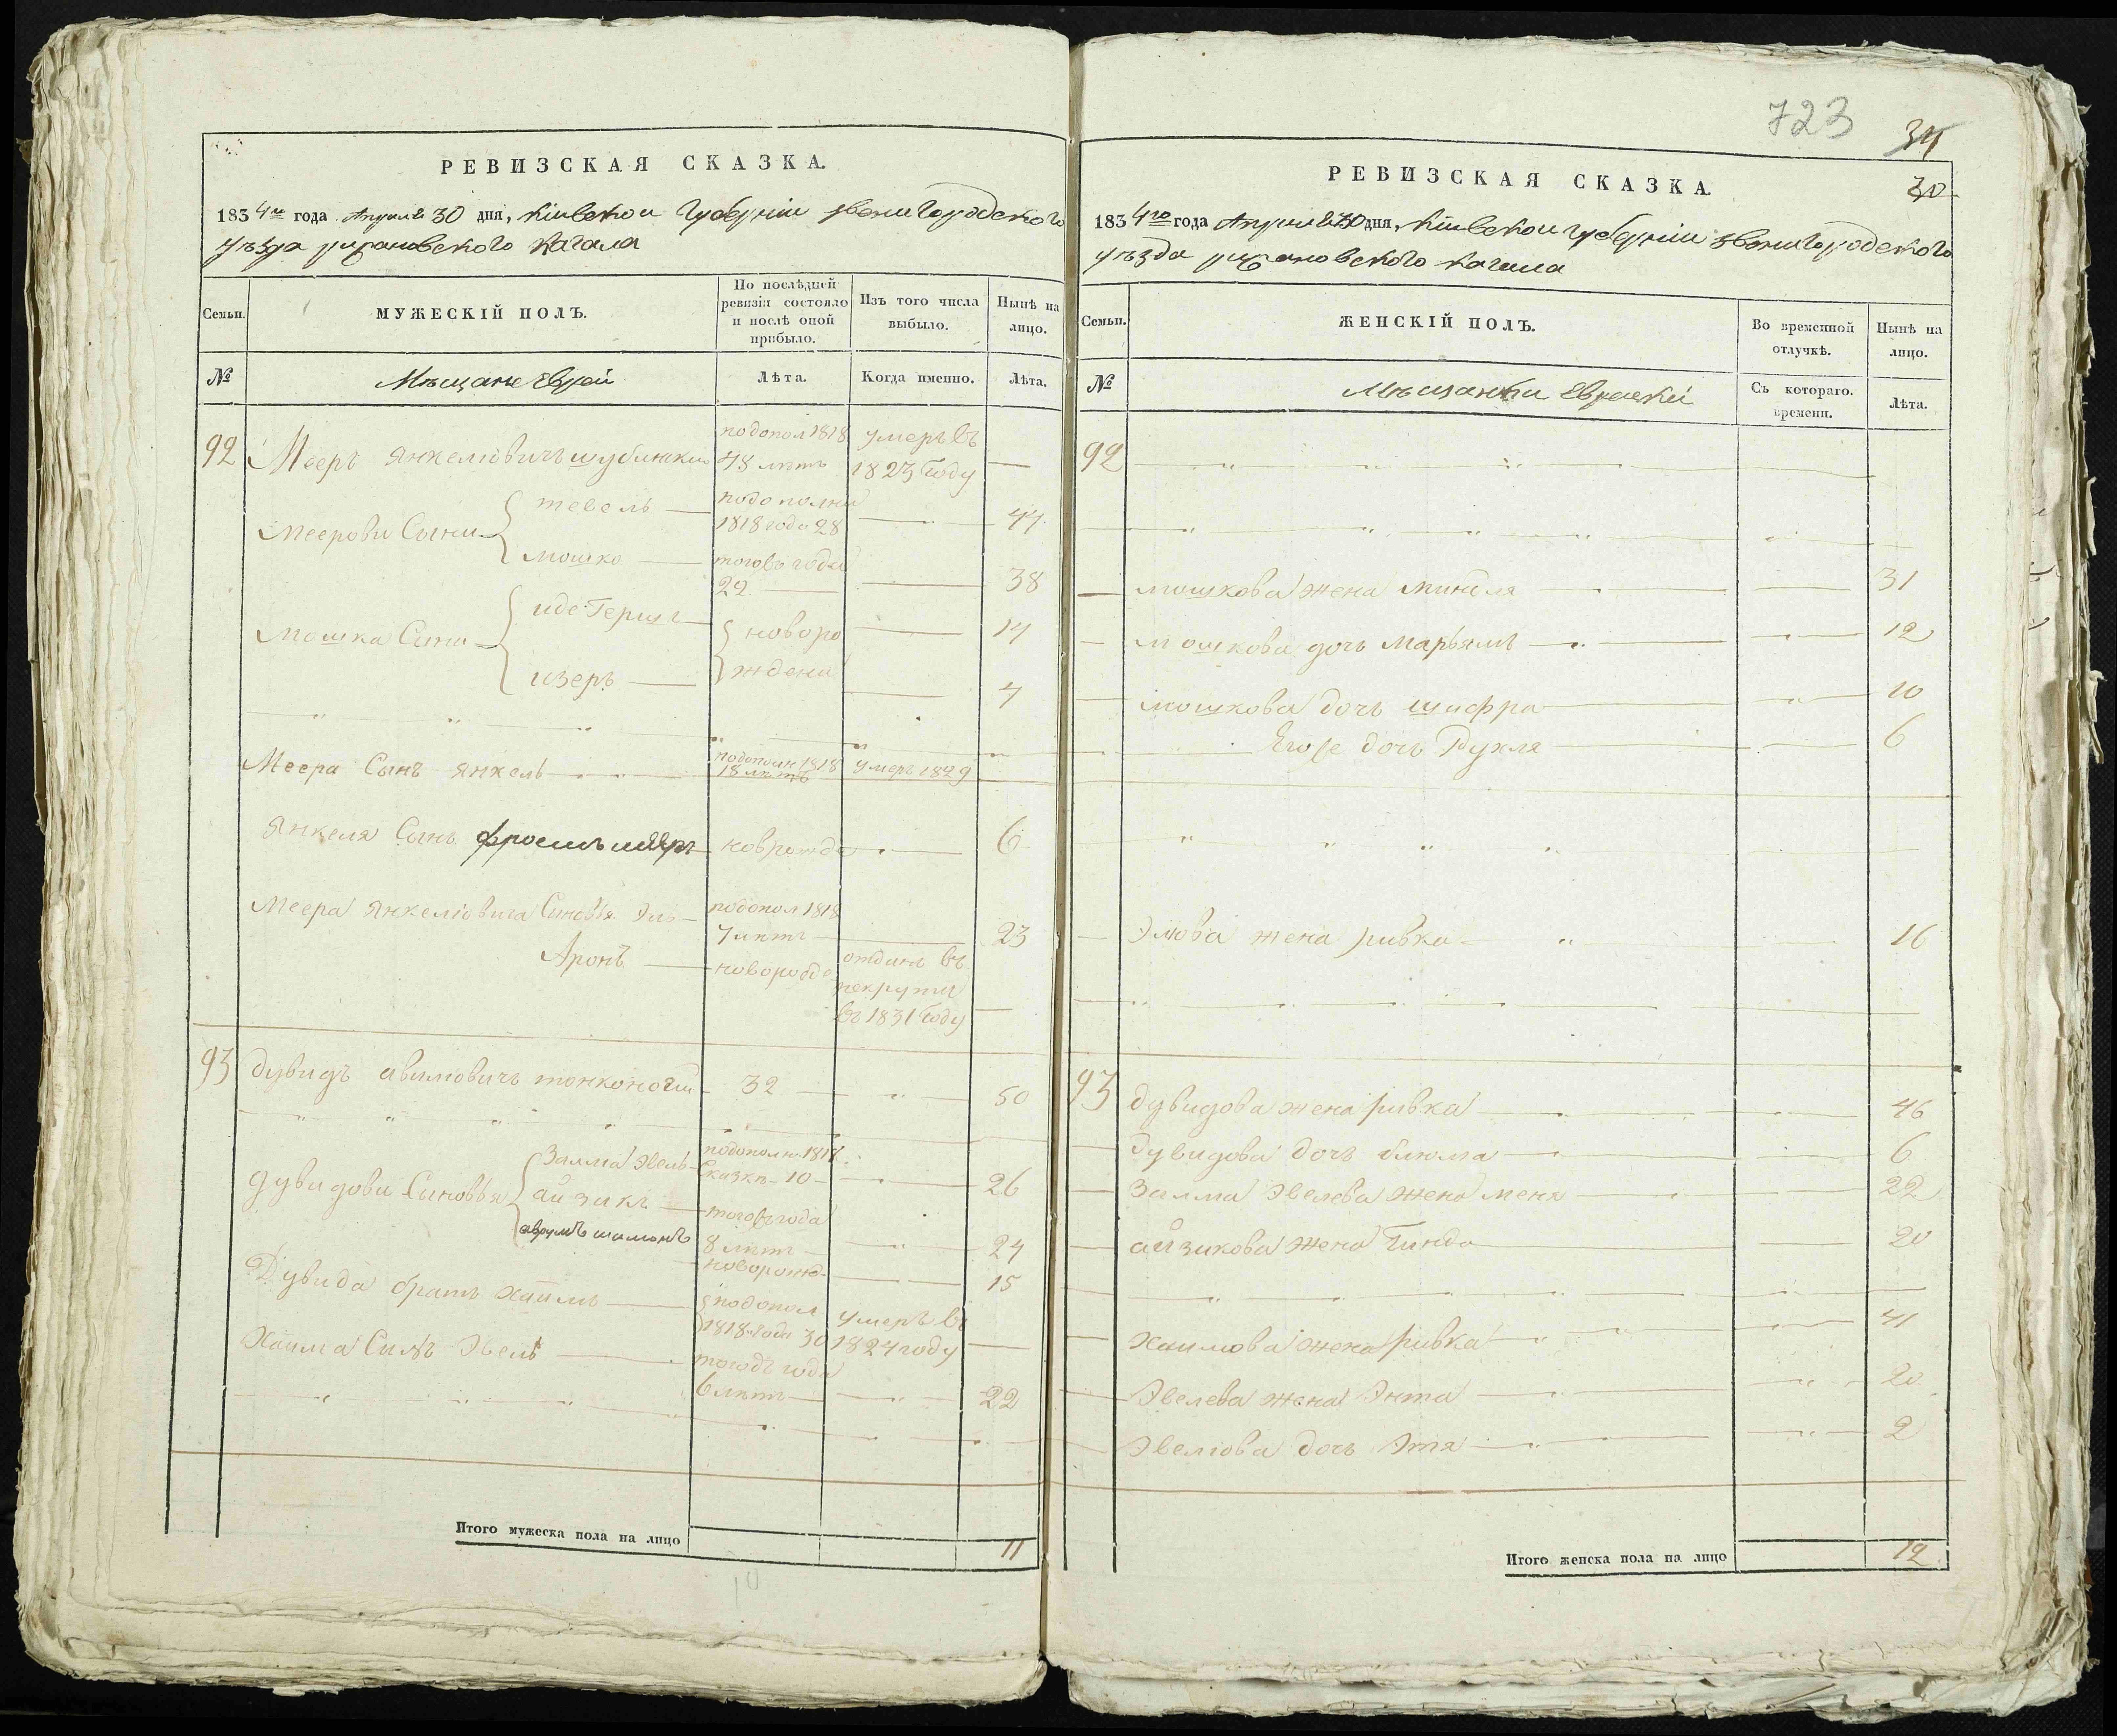 723
34
30
РЕВИЗСКАЯ СКАЗКА.
1834го года Апреля 30 дня, Кіивской Губерніи звенигородского
уѣзда рижановского кагала
Семьи.
МУЖЕСКІЙ ПОЛЪ.
По послѣдней ревизіи состояло и послѣ оной прибыло.
Изъ того числа выбыло.
Нынѣ на лицо.
№
Мѣщане Евреи
Лѣта.
Когда именно.
Лѣта.
92 Мееръ Янкелювичъ шублинский подопол 1818 48 лѣтъ умеръ въ 1823 году —
Меерови Сыни
тевель — подополни 1818 года 28 — 44
мошко — тоговъ года 22 — 38
Мошка Сыни
иде-Гершъ — новоро — 14
изеръ — ждени — 4
Меера Сынъ Янкель — подополн 1818 18 лѣтъ умеръ 1829
Янкеля Сынъ фроимъ мееръ новрожде — 6
Меера Янкелювича Синовья Эль — подопол 1818 7 лѣтъ — 23
Аронъ — новорожд отданъ въ рекрути въ 1831 году —
93 Дувидъ авилювичъ тонконогий 32 — 50
Дувидови Сыновья
Залма Эвель — подополн 1818 Сказкѣ 10 — 26
айзикъ — тоговъ года 8 лѣтъ — 24
аврумъ шимонъ новорожд — 15
Дувида братъ Хаимъ — подопол 1818 года 30 умеръ въ 1824 году —
Хаима Синъ Эвель — тогодъ года 6 лѣтъ — 22
Итого мужеска пола на лицо 11
10
РЕВИЗСКАЯ СКАЗКА.
1834го года Апреля 30 дня, Кіивской губерніи звенигородского
уѣзда рижановского кагала
Семьи.
ЖЕНСКІЙ ПОЛЪ.
Во временной отлучкѣ.
Нынѣ на лицо.
№
Мѣщанки Еврейскии
Съ котораго времени.
Лѣта.
92
— мошкова жена Миндля — 31
— мошкова дочь Марьямъ — 12
— мошкова дочь шифра — 10
Егоже дочь Рухля — 6
— Элова жена ривка — 16
93 Дувидова жена ривка — 46
— Дувидова дочь блюма — 6
— Залма Эвелева жена меня — 22
— айзикова жена Гинда — 20
— Хаимова жена ривка — 41
— Эвелева жена Энта — 20
Эвелюва дочь Этя — 2
Итого женска пола на лицо 12